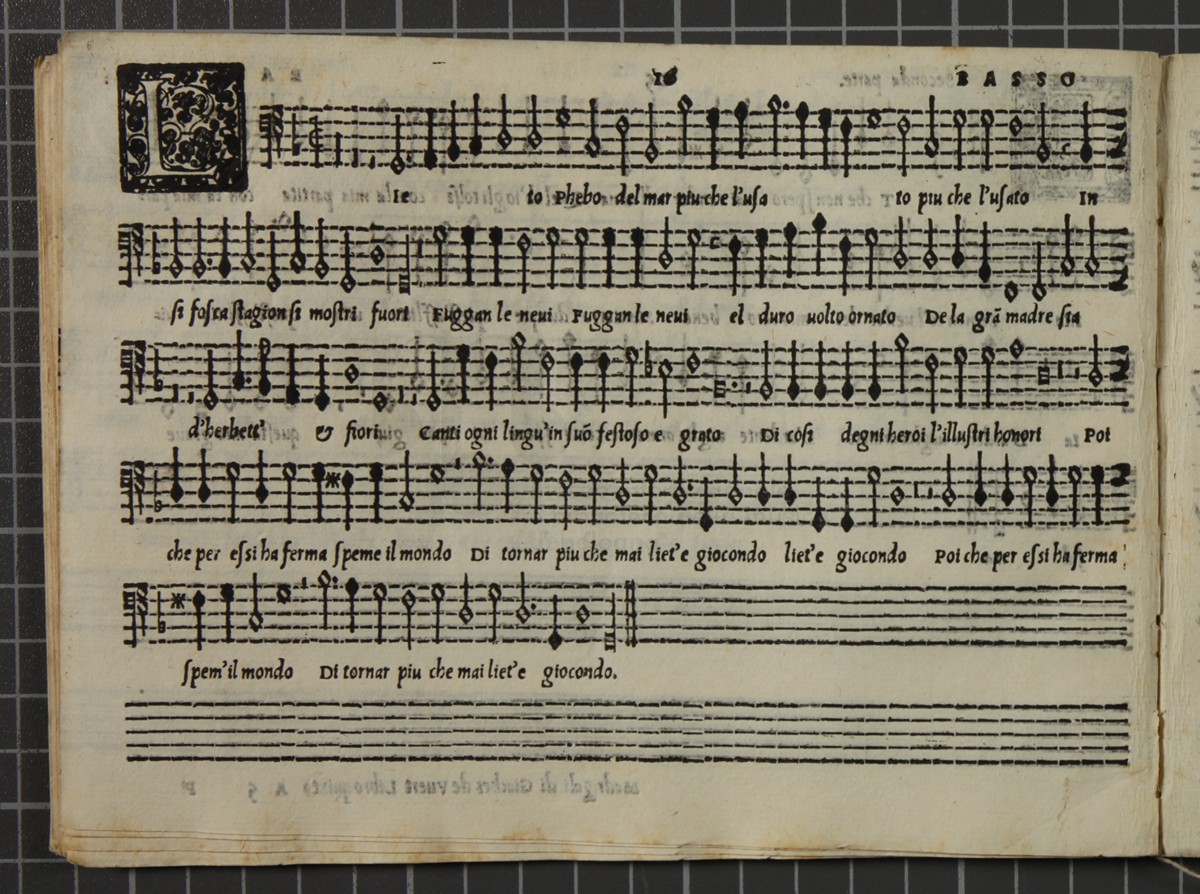 16 BASSO
LIe to Phebo del mar piu che l'usa to piu che l'usato In
si fosca stagion si mostri fuori Fuggan le neui Fuggan le neui el duro uolto ornato De la grã madre sia
d'herbett' & fiori Canti ogni lingu'in suõ festoso e grato Di cosi degni heroi l'illustri honori Poi
che per essi ha ferma speme il mondo Di tornar piu che mai liet'e giocondo liet'e giocondo Poi che per essi ha ferma
spem'il mondo Di tornar piu che mai liet'e giocondo.